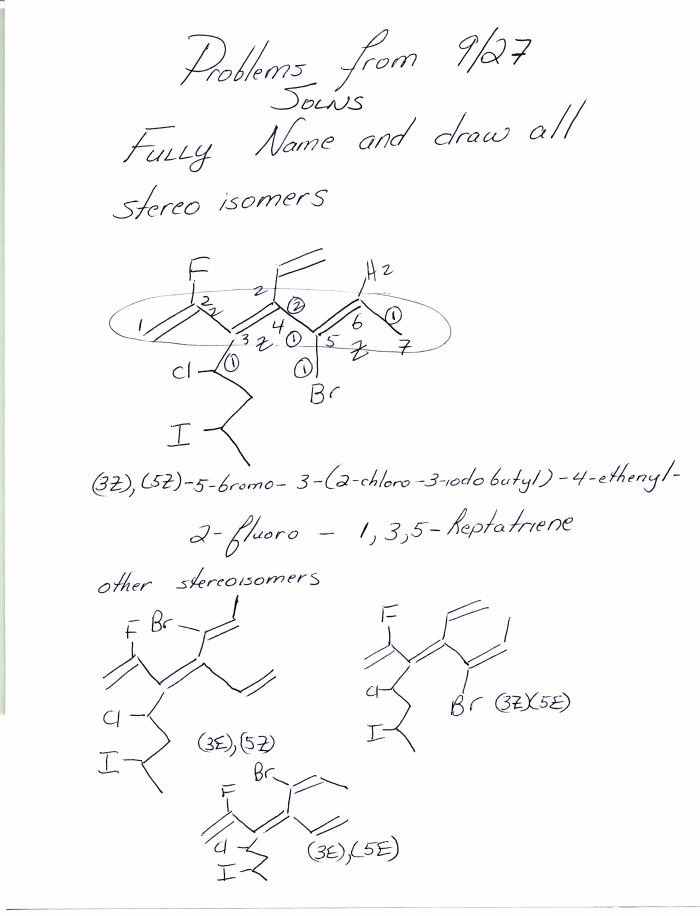 Problems from 9/27
SOLNS
FULLY Name and draw all
stereo isomers
F
H 2
2
2
2
2
1
3 Z
4
1
5
6
Z
1
7
Cl
1
1
Br
I
(3Z), (5Z)-5-bromo-3-(2-chloro-3-iodobutyl)-4-ethenyl-
2-fluoro - 1,3,5-heptatriene
other stereoisomers
F Br
Cl
I
(3E), (5Z)
F
Cl
I
Br (3Z)(5E)
Br
F
Cl
I
(3E), (5E)